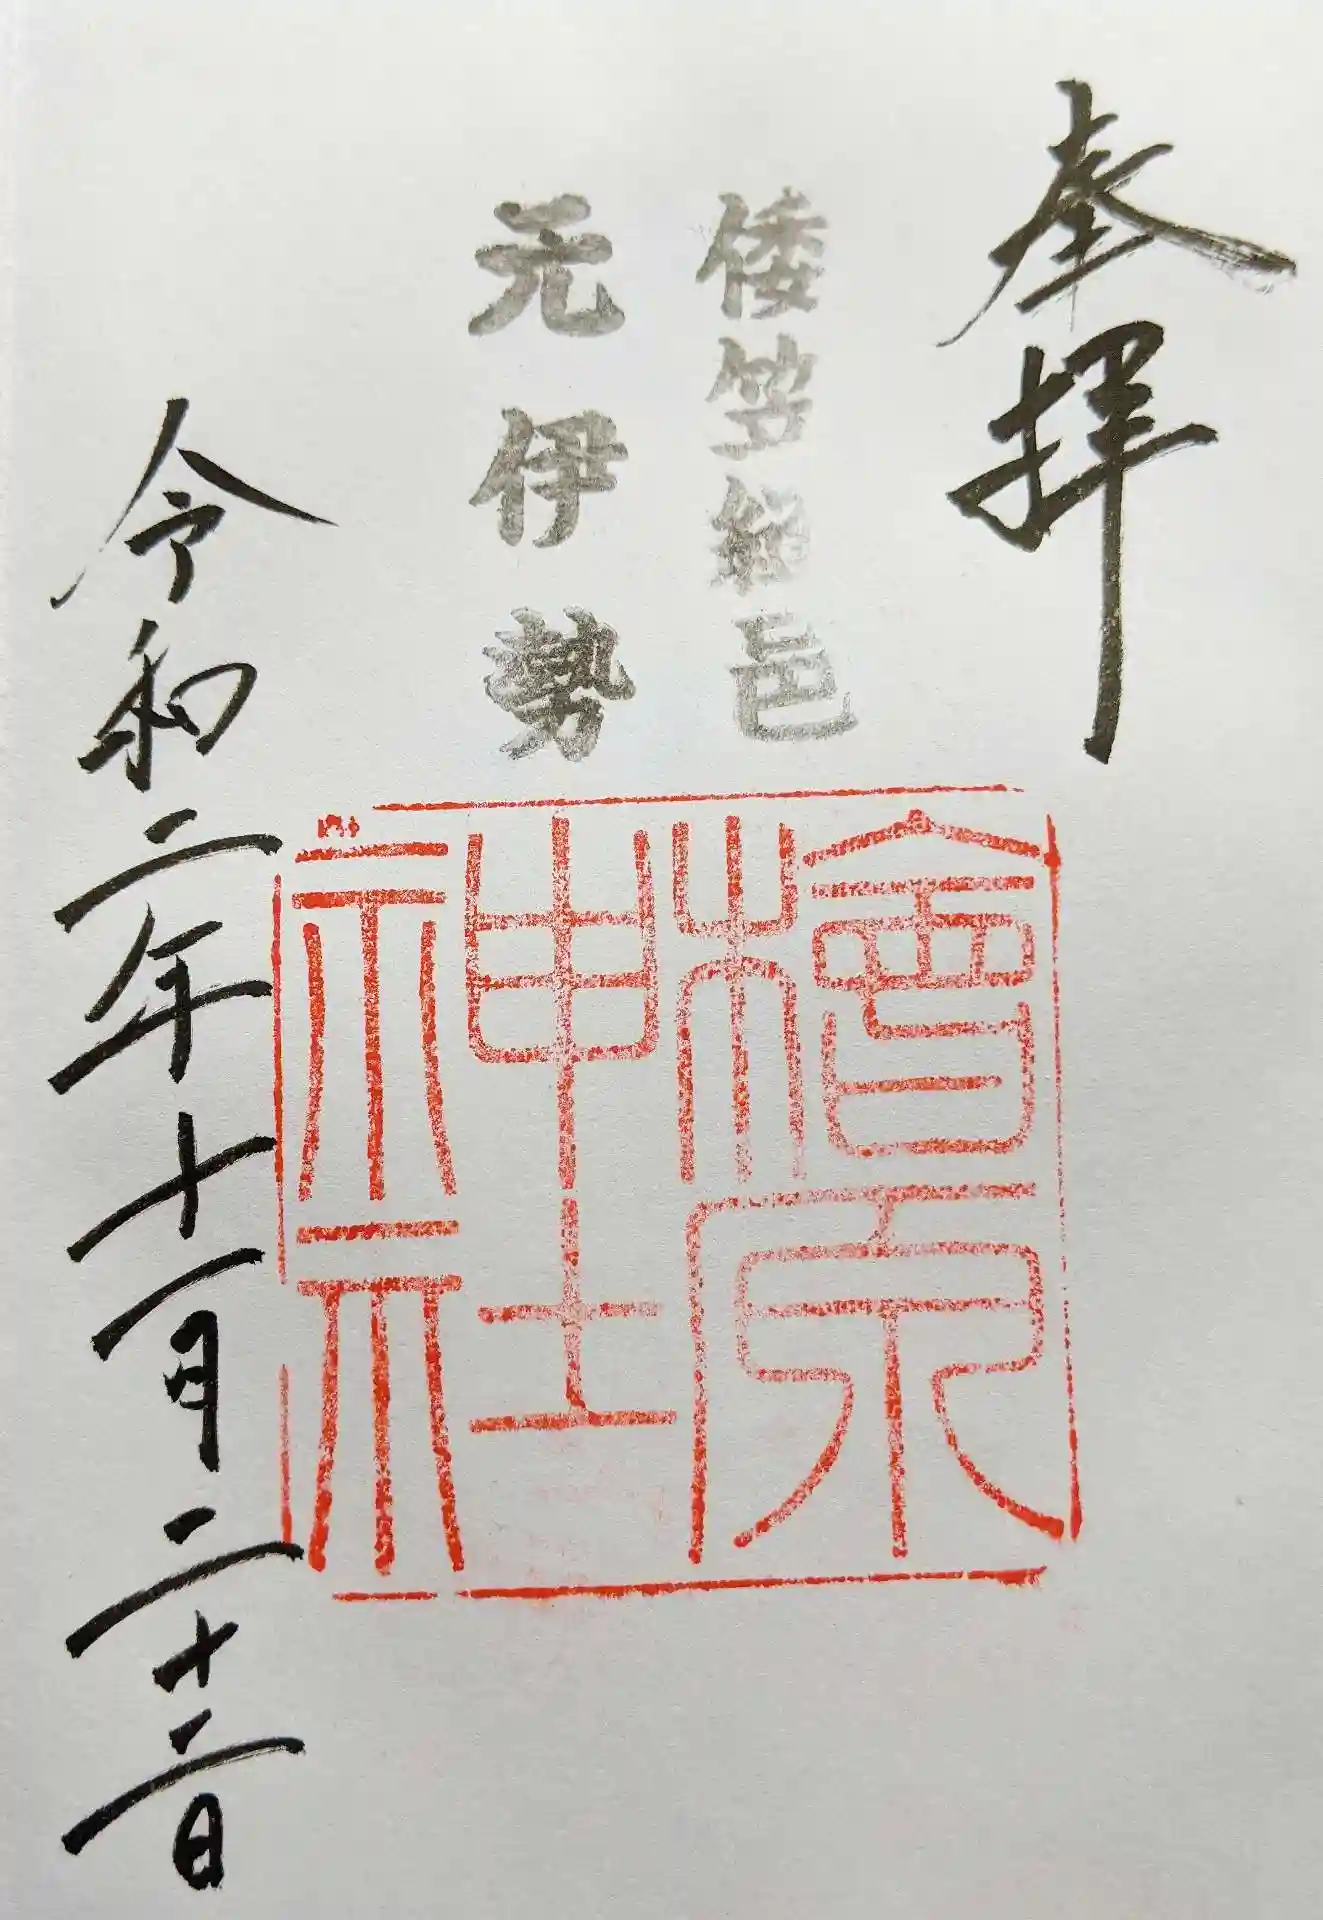 奉拝
倭笠縫邑
元伊勢
檜原神社
令和二年十一月二十二日